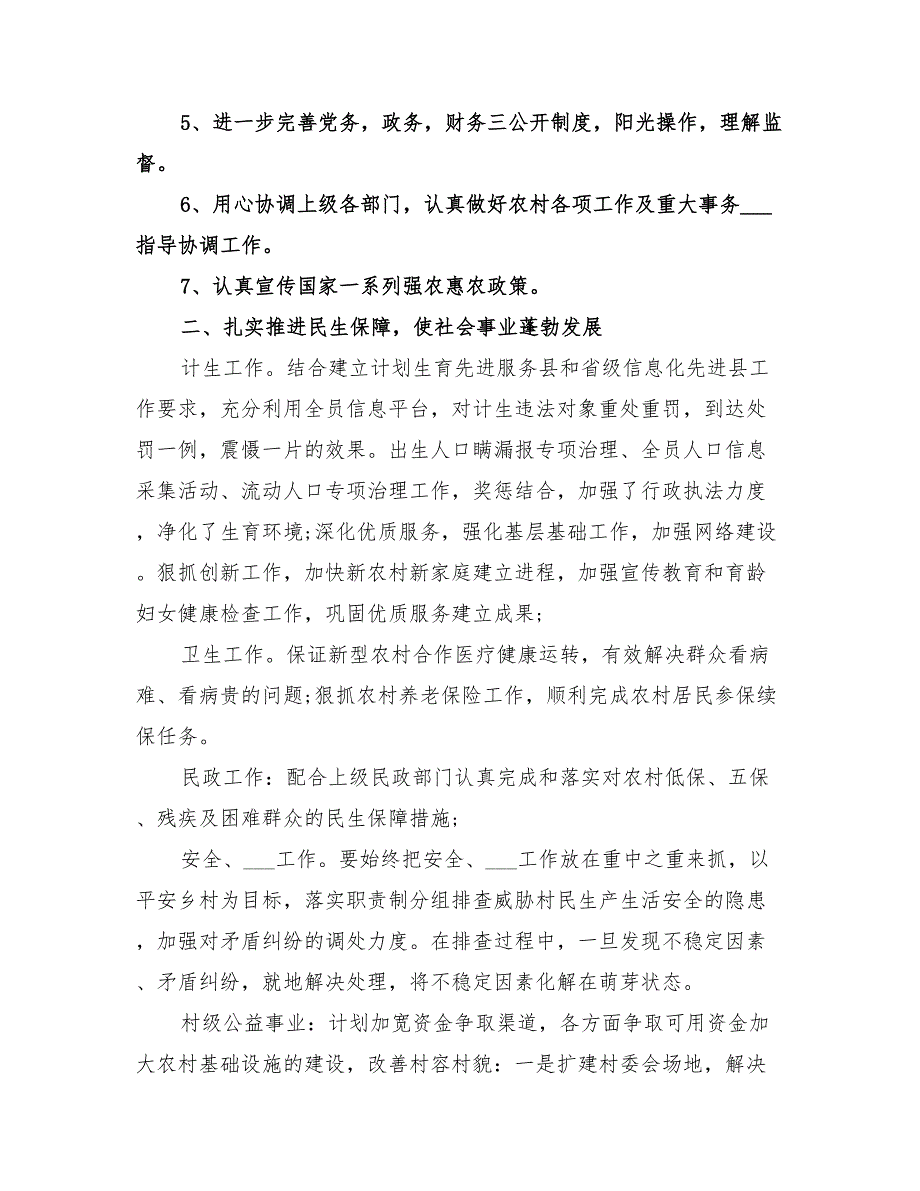 5、进一步完善党务，政务，财务三公开制度，阳光操作，理解监
督。
6、用心协调上级各部门，认真做好农村各项工作及重大事务___
指导协调工作。
7、认真宣传国家一系列强农惠农政策。
二、扎实推进民生保障，使社会事业蓬勃发展
计生工作。结合建立计划生育先进服务县和省级信息化先进县工
作要求，充分利用全员信息平台，对计生违法对象重处重罚，到达处
罚一例，震慑一片的效果。出生人口瞒漏报专项治理、全员人口信息
采集活动、流动人口专项治理工作，奖惩结合，加强了行政执法力度
，净化了生育环境;深化优质服务，强化基层基础工作，加强网络建设
。狠抓创新工作，加快新农村新家庭建立进程，加强宣传教育和育龄
妇女健康检查工作，巩固优质服务建立成果;
卫生工作。保证新型农村合作医疗健康运转，有效解决群众看病
难、看病贵的问题;狠抓农村养老保险工作，顺利完成农村居民参保续
保任务。
民政工作：配合上级民政部门认真完成和落实对农村低保、五保
、残疾及困难群众的民生保障措施;
安全、___工作。要始终把安全、___工作放在重中之重来抓，以
平安乡村为目标，落实职责制分组排查威胁村民生产生活安全的隐患
，加强对矛盾纠纷的调处力度。在排查过程中，一旦发现不稳定因素
、矛盾纠纷，就地解决处理，将不稳定因素化解在萌芽状态。
村级公益事业：计划加宽资金争取渠道，各方面争取可用资金加
大农村基础设施的建设，改善村容村貌：一是扩建村委会场地，解决